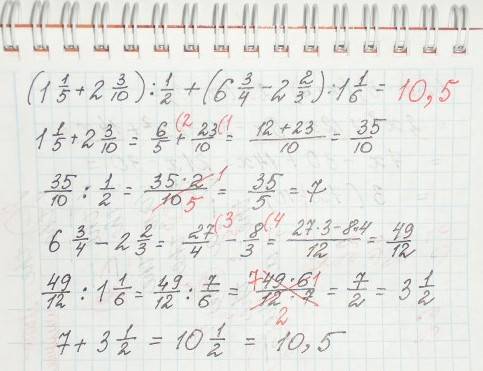 (1 1/5 + 2 3/10) : 1/2 + (6 3/4 - 2 2/3) : 1 1/6 = 10,5
1 1/5 + 2 3/10 = 6/5 (2 + 23/10 (1 = (12 + 23)/10 = 35/10
35/10 : 1/2 = (35 · 2 1)/(10 5) = 35/5 = 7
6 3/4 - 2 2/3 = 27/4 (3 - 8/3 (4 = (27·3 - 8·4)/12 = 49/12
49/12 : 1 1/6 = 49/12 : 7/6 = (7 49 · 6 1)/(12 · 7 2) = 7/2 = 3 1/2
7 + 3 1/2 = 10 1/2 = 10,5